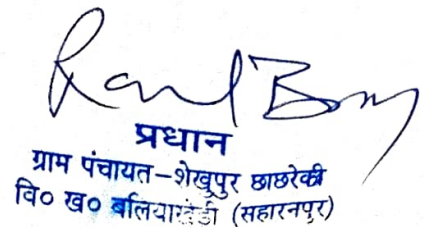 प्रधान
ग्राम पंचायत-शेखुपुर छाछरेकी
वि० ख० बलियाखेडी (सहारनपुर)